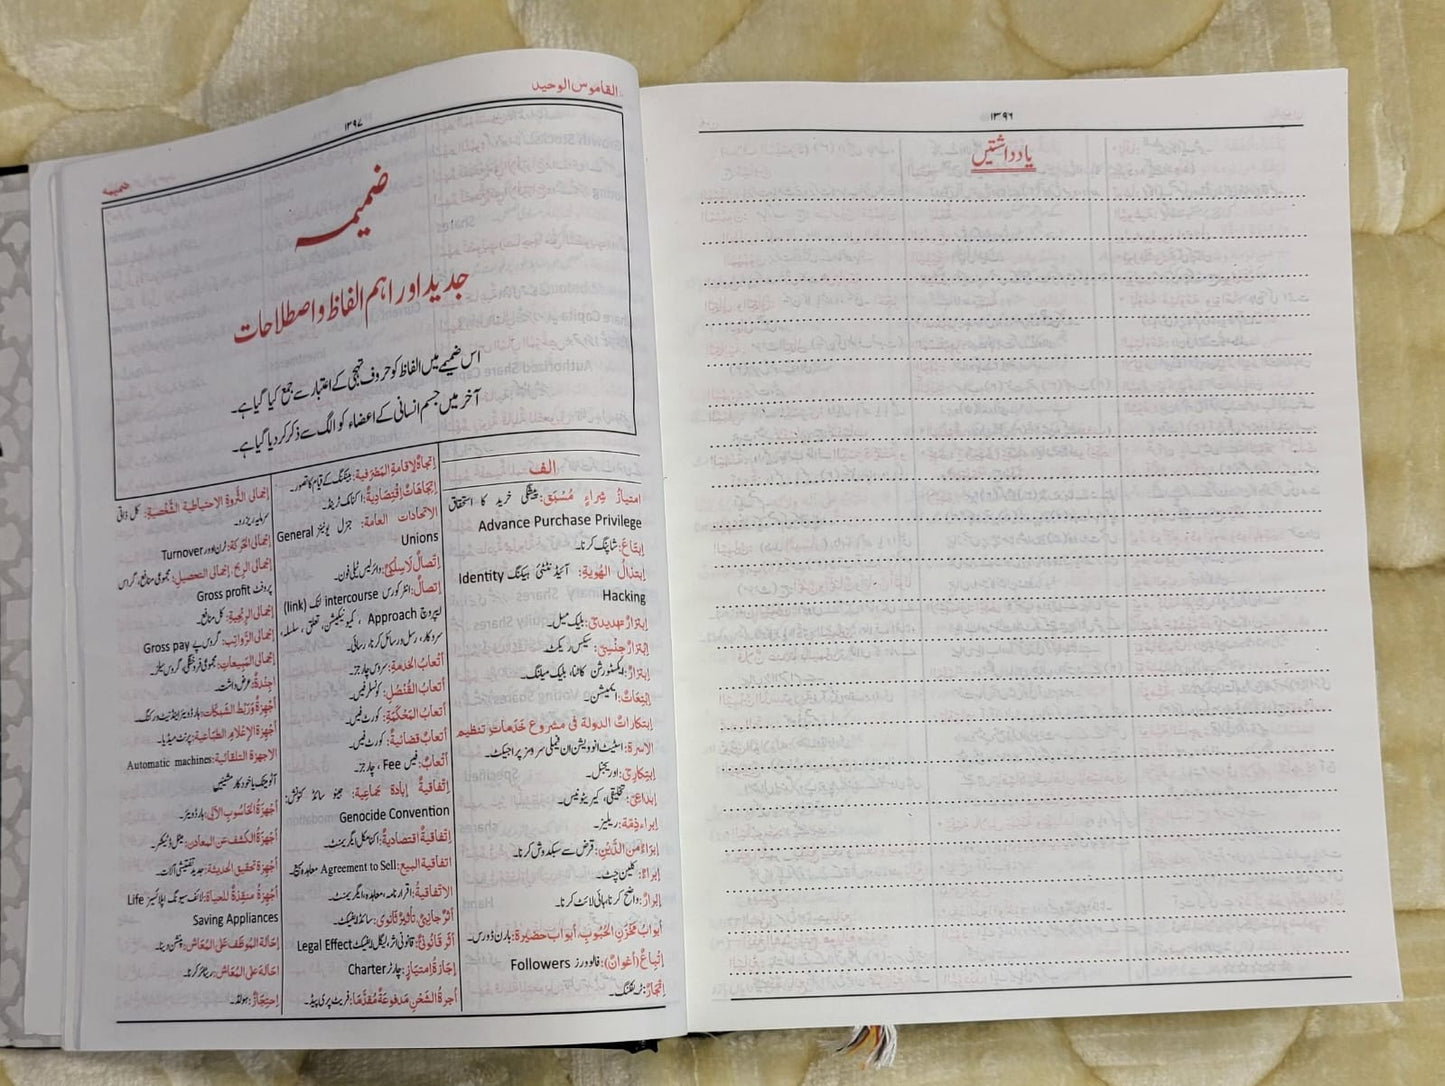 ۱۳۹۶
یادداشتیں
القاموس الوحید
۱۳۹۷
ضمیمہ
ضمیمہ
جدید اور اہم الفاظ و اصطلاحات
اس ضمیمے میں الفاظ کو حروف تہجی کے اعتبار سے جمع کیا گیا ہے۔
آخر میں جسم انسانی کے اعضاء کو الگ سے ذکر کر دیا گیا ہے۔
الف
امتیازُ شِراءٍ مُسْبَق: پیشگی خرید کا استحقاق
Advance Purchase Privilege
اِبْتَاعَ: شاپنگ کرنا۔
اِبتذالُ الهُوِيةِ: آئیڈنٹٹی ہیکنگ Identity
Hacking
اِبْتِزازٌ تهديديٌ: بلیک میل۔
اِبْتِزازٌ جِنْسِيٌّ: سیکس ریکٹ۔
اِبْتِزازٌ: ایکسٹورشن کاٹنا، بلیک میلنگ۔
اِبْتِعَاثٌ: ایمیشن۔
اِبتكاراتُ الدولة فى مشروع خَدَماتِ تنظيم
الاسرة: اسٹیٹ انوویشن ان فیملی سروسز پراجیکٹ۔
اِبتكاريٌ: اوریجنل۔
اِبداعيٌ: تخلیقی، کیریٹوٹیس۔
اِبراء ذِمَّة: ریلیز۔
اِبْرَاءٌ مِنَ الدَّيْنِ: قرض سے سبکدوش کرنا۔
اِبراءٌ: کلین چٹ۔
اِبرازٌ: واضح کرنا، ہائی لائٹ کرنا۔
أبوابُ مَخْزَنِ الحُبُوبِ، أبوابُ حَضيرة: بارن ڈورس۔
اِتْباعٌ (أعْوانٌ): فالوورز Followers
اِتِّجارٌ: ٹریفکنگ۔
اِتجاهٌ لاقامةِ المَصْرَفية: بینکنگ کے قیام کا تصور۔
اتِّجَاهَاتٌ اِقْتِصَادِيةٌ: اکنامک ٹرینڈ۔
الاتحادات العامة: جنرل یونینز General
Unions
اِتّصالٌ لاسِلْكِيٌّ: وائرلیس ٹیلی فون۔
اِتصالٌ: انٹرکورس intercourse لنک (link)
اپروچ Approach ، کمیونیکیشن، تعلق، سلسلہ،
سروکار، رسل و رسائل کرنا، رسائی۔
أتعابُ الخدمةِ: سروس چارجز۔
أتعابُ القُنْصُل: کونسلر فیس۔
أتعابُ المَحْكَمَةِ: کورٹ فیس۔
أتعابٌ قضائيةٌ: کورٹ فیس۔
أتعابٌ: فیس Fee ، چارجز۔
اِتفاقيةُ اِبادة جَماعِية: جینو سائڈ کنونشن:
Genocide Convention
اِتفاقيةٌ اقتصاديةٌ: اکنامکل ایگریمنٹ۔
اتفاقية البيع: Agreement to Sell معاہدہ بیع۔
الاتفاقيةُ: اقرارنامہ، معاہدہ، ایگریمنٹ۔
أثرٌ جانِبِيٌّ، تأثيرٌ ثانوي: سائڈ ایفیکٹ۔
أثر قانُونيٌّ: قانونی اثر، لیگل ایفیکٹ Legal Effect
اِجَازَةُ اِمتِيازٍ: چارٹر Charter
أجرةُ الشَّحْنِ مَدفوعةٌ مُقَدَّمًا: فریٹ پری پیڈ۔
اِجمالى الثَّروةِ الاحتياطية الشَّخْصيةِ: کل ذاتی
سرمایہ ریزرو۔
اِجمالى الحَرَكة: ٹرن اوور Turnover
اِجمالى الرِّبح، اِجمالى التحصيل: مجموعی منافع، گراس
پروفٹ Gross profit
اِجمالى الرِّبْحِيةِ: کل منافع۔
اِجمالى الرَّواتِب: گروس پے Gross pay
اِجمالى المَبيعات: مجموعی فروختگی، گروس سیلز۔
اجِنْدةٌ: عرض داشت۔
أجهزةُ ورَبْطُ الشبكات: ہارڈویئر اینڈ نیٹ ورکنگ۔
أجهزةُ الإعلامِ الطِّبَاعية: پرنٹ میڈیا۔
الاجهزة التلقائية: Automatic machines
آٹومیٹک یا خودکار مشینیں
أجهزةُ الحَاسُوبِ الآلى: ہارڈویئر۔
أجهزةُ الكشف عن المعادن: میٹل ڈیٹیکٹر۔
أجهزةُ تحقيق الحديثة: جدید تفتیشی آلات۔
أجهزةٌ مُنقِذةٌ للحياة: لائف سیونگ اپلائنسز Life
Saving Appliances
اِحالة المُوَظَّفِ على المَعَاش: پنشن دینا۔
احاله على المَعَاش: ریٹائر کرنا۔
اِحتِجازٌ: ہولڈ۔